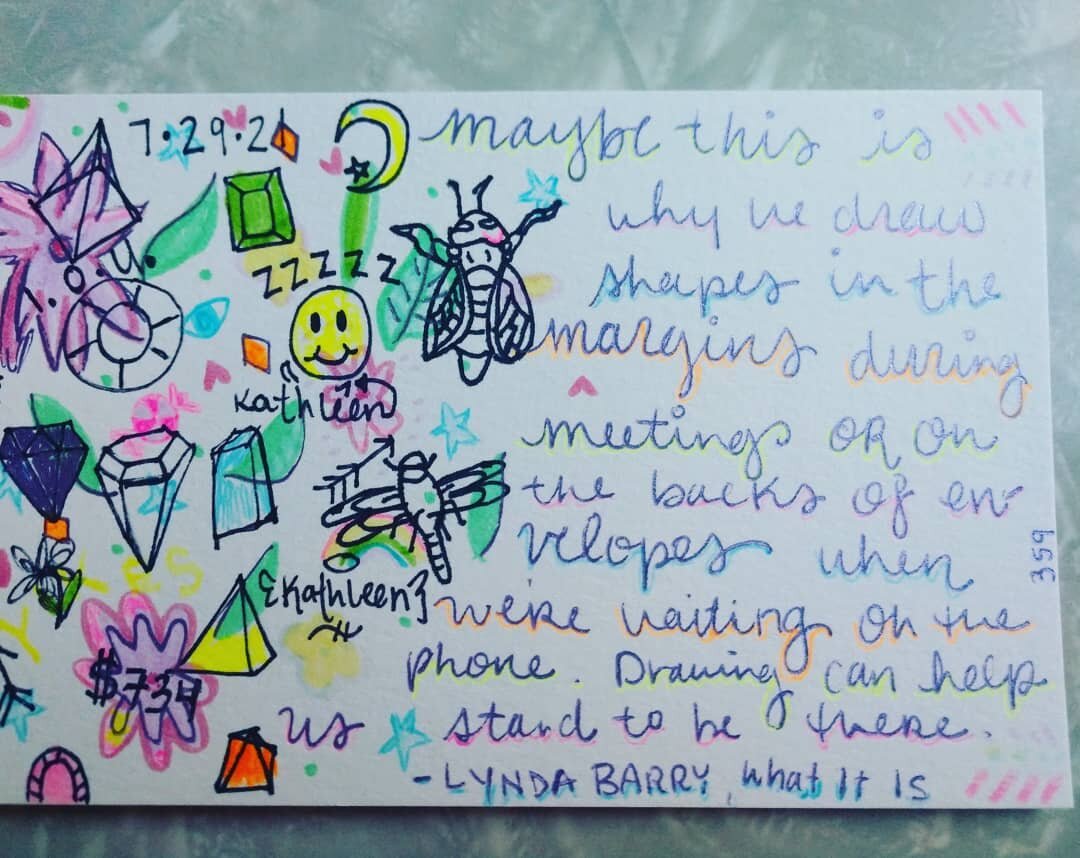 7.29.2
maybe this is
why we draw
shapes in the
zzzzz
margins during
Kathleen
meetings OR on
the backs of en-
velopes when
359
YES
{Kathleen}
we're waiting on the
phone. Drawing can help
$734
us stand to be there.
- LYNDA BARRY, What It Is